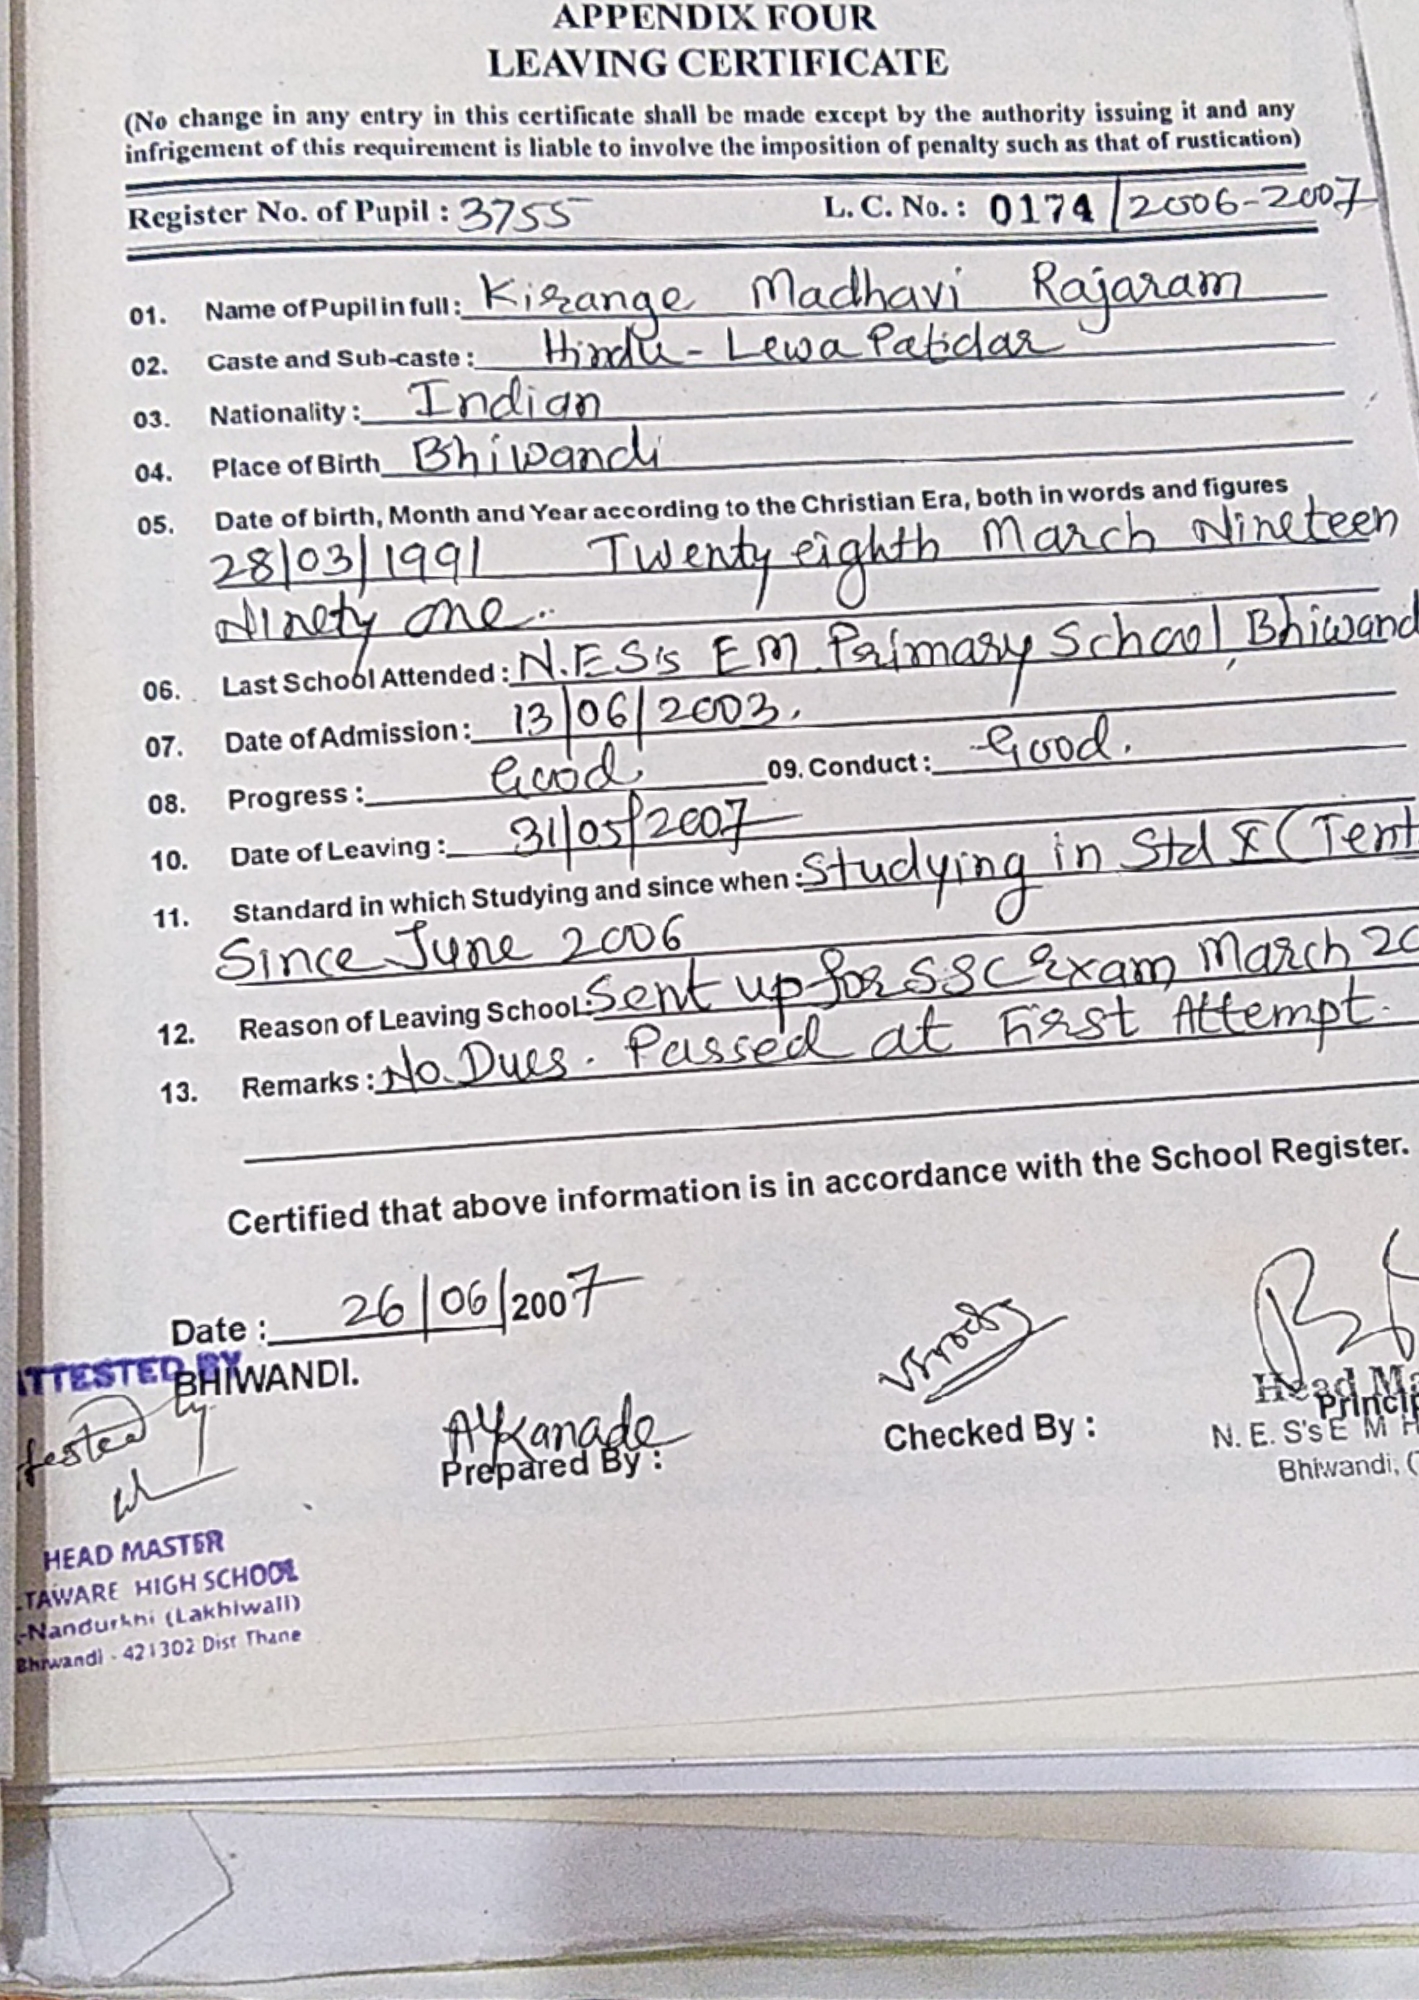 APPENDIX FOUR
LEAVING CERTIFICATE
(No change in any entry in this certificate shall be made except by the authority issuing it and any
infrigement of this requirement is liable to involve the imposition of penalty such as that of rustication)
Register No. of Pupil : 3755 L. C. No. : 0174 / 2006-2007
01. Name of Pupil in full : Kirange Madhavi Rajaram
02. Caste and Sub-caste : Hindu - Lewa Patidar
03. Nationality : Indian
04. Place of Birth Bhiwandi
05. Date of birth, Month and Year according to the Christian Era, both in words and figures
28/03/1991 Twenty eighth March Nineteen
Ninety one.
06. Last School Attended : N.E.S's E M Primary School, Bhiwand
07. Date of Admission : 13/06/2003.
08. Progress : Good. 09. Conduct : Good.
10. Date of Leaving : 31/05/2007
11. Standard in which Studying and since when : Studying in Std X (Tent
Since June 2006
12. Reason of Leaving School : Sent up for SSC exam March 20
13. Remarks : No Dues. Passed at First Attempt.
Certified that above information is in accordance with the School Register.
Date : 26/06/2007
ATTESTED BY
BHIWANDI.
Prepared By :
Checked By :
Head Ma
Princip
N. E. S's E M H
Bhiwandi, (
HEAD MASTER
TAWARE HIGH SCHOOL
-Nandurkhi (Lakhiwali)
Bhiwandi - 421302 Dist Thane